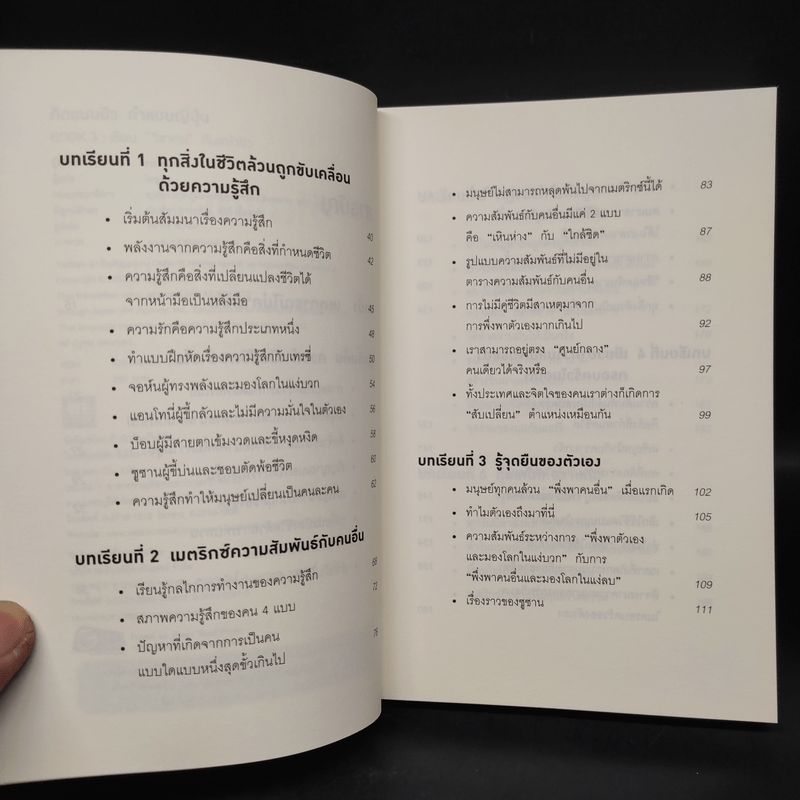 บทเรียนที่ 1 ทุกสิ่งในชีวิตล้วนถูกขับเคลื่อน
ด้วยความรู้สึก
• เริ่มต้นสัมมนาเรื่องความรู้สึก 40
• พลังงานจากความรู้สึกคือสิ่งที่กำหนดชีวิต 42
• ความรู้สึกคือสิ่งที่เปลี่ยนแปลงชีวิตได้
จากหน้ามือเป็นหลังมือ 45
• ความรักคือความรู้สึกประเภทหนึ่ง 48
• ทำแบบฝึกหัดเรื่องความรู้สึกกับเทรซี่ 50
• จอห์นผู้ทรงพลังและมองโลกในแง่บวก 54
• แอนโทนี่ผู้ขี้กลัวและไม่มีความมั่นใจในตัวเอง 56
• บ็อบผู้มีสายตาเข้มงวดและขี้หงุดหงิด 58
• ซูซานผู้ขี้บ่นและชอบตัดพ้อชีวิต 60
• ความรู้สึกทำให้มนุษย์เปลี่ยนเป็นคนละคน 62
บทเรียนที่ 2 เมตริกซ์ความสัมพันธ์กับคนอื่น
• เรียนรู้กลไกการทำงานของความรู้สึก 69
• สภาพความรู้สึกของคน 4 แบบ 72
• ปัญหาที่เกิดจากการเป็นคน
แบบใดแบบหนึ่งสุดขั้วเกินไป 76
• มนุษย์ไม่สามารถหลุดพ้นไปจากเมตริกซ์นี้ได้ 83
• ความสัมพันธ์กับคนอื่นมีแค่ 2 แบบ
คือ “เหินห่าง” กับ “ใกล้ชิด” 87
• รูปแบบความสัมพันธ์ที่ไม่มีอยู่ใน
ตารางความสัมพันธ์กับคนอื่น 88
• การไม่มีคู่ชีวิตมีสาเหตุมาจาก
การพึ่งพาตัวเองมากเกินไป 92
• เราสามารถอยู่ตรง “ศูนย์กลาง”
คนเดียวได้จริงหรือ 97
• ทั้งประเทศและจิตใจของคนเราต่างก็เกิดการ
“สับเปลี่ยน” ตำแหน่งเหมือนกัน 99
บทเรียนที่ 3 รู้จุดยืนของตัวเอง
• มนุษย์ทุกคนล้วน “พึ่งพาคนอื่น” เมื่อแรกเกิด 102
• ทำไมตัวเองถึงมาที่นี่ 105
• ความสัมพันธ์ระหว่างการ “พึ่งพาตัวเอง
และมองโลกในแง่บวก” กับการ
“พึ่งพาคนอื่นและมองโลกในแง่ลบ” 109
• เรื่องราวของซูซาน 111